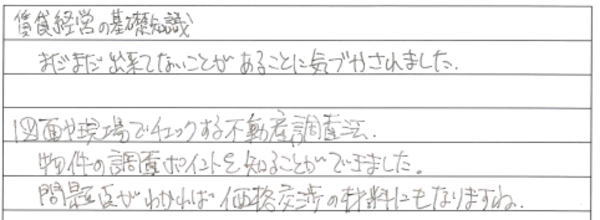 賃貸経営の基礎知識
まだまだ出来てないことがあることに気づかされました.
図面や現場でチェックする不動産調査法.
物件の調査ポイントを知ることができました。
問題点がわかれば価格交渉の材料にもなりますね.